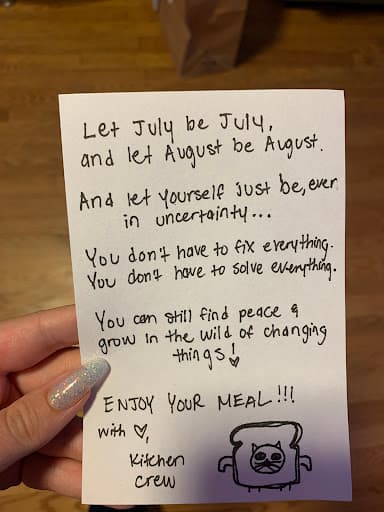 Let July be July,
and let August be August.
And let yourself just be, even
in uncertainty...
You don't have to fix everything.
You don't have to solve everything.
You can still find peace &
grow in the wild of changing
things!
ENJOY YOUR MEAL!!!
with ♡,
Kitchen
crew